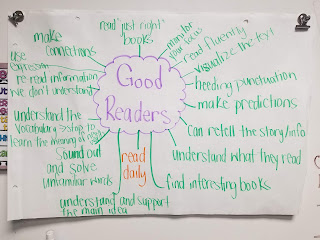 Good
Readers
read "just right"
books
monitor
your
read fluently
visualize the text
heeding punctuation
make predictions
Can retell the story/info
understand what they read
find interesting books
read
daily
understand and support
the main idea
Sound out
and solve
unfamiliar words
understand the
vocabulary → stop to
learn the meaning of
re-read information
we don't understand
use
expression
make
connections